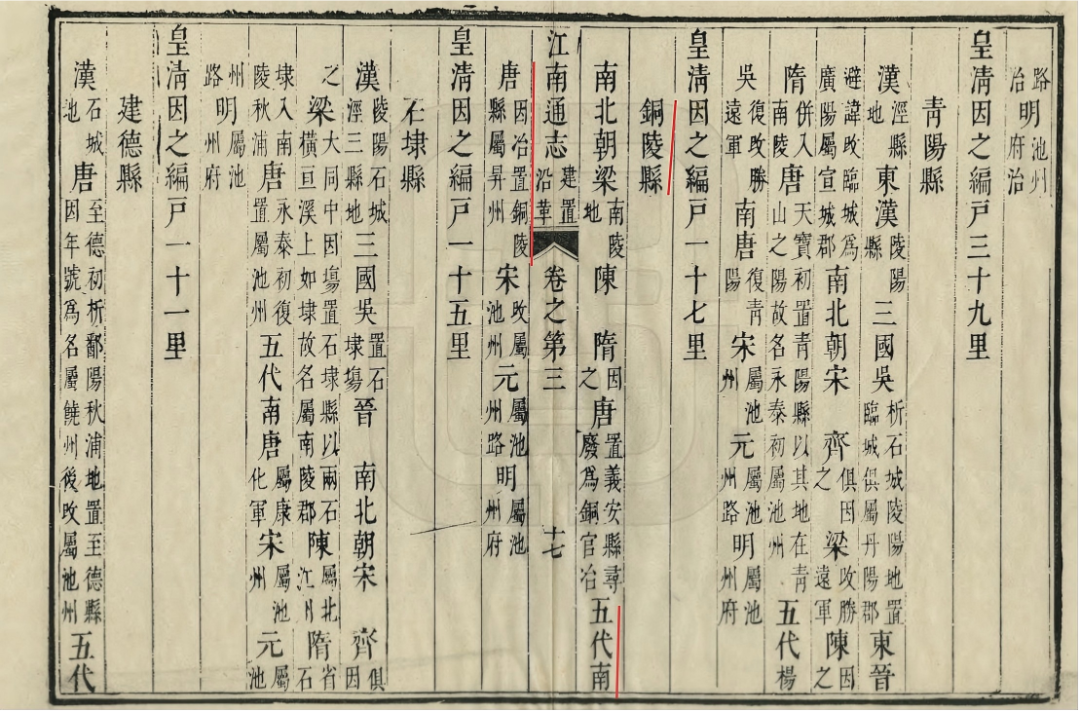 路治明池州府治
皇清因之編戸三十九里
青陽縣
漢涇縣地東漢陵陽縣三國吳析石城陵陽地置臨城俱屬丹陽郡東晉
避諱改臨城爲廣陽屬宣城郡南北朝宋 齊俱因之梁改勝遠軍陳因之
隋併入南陵唐天寶初置青陽縣以其地在青山之陽故名永泰初屬池州五代楊
吳復改勝遠軍南唐復青陽宋屬池州元屬池州路明屬池州府
皇清因之編戸一十七里
銅陵縣
南北朝梁南陵地陳 隋因之唐置義安縣尋廢爲銅官冶五代南
江南通志 建置沿革 卷之第三 十七
唐因冶置銅陵縣屬昇州宋改屬池州元屬池州路明屬池州府
皇清因之編戸一十五里
石埭縣
漢陵陽石城涇三縣地三國吳置石埭塲晉 南北朝宋 齊俱因
之梁大同中因塲置石埭縣以兩石橫亘溪上如埭故名屬南陵郡陳屬北江州隋省石
埭入南陵秋浦唐永泰初復置屬池州五代南唐屬康化軍宋屬池州元屬池
州路明屬池州府
皇清因之編戸一十一里
建德縣
漢石城地唐至德初析鄱陽秋浦地置至德縣因年號爲名屬饒州後改屬池州五代